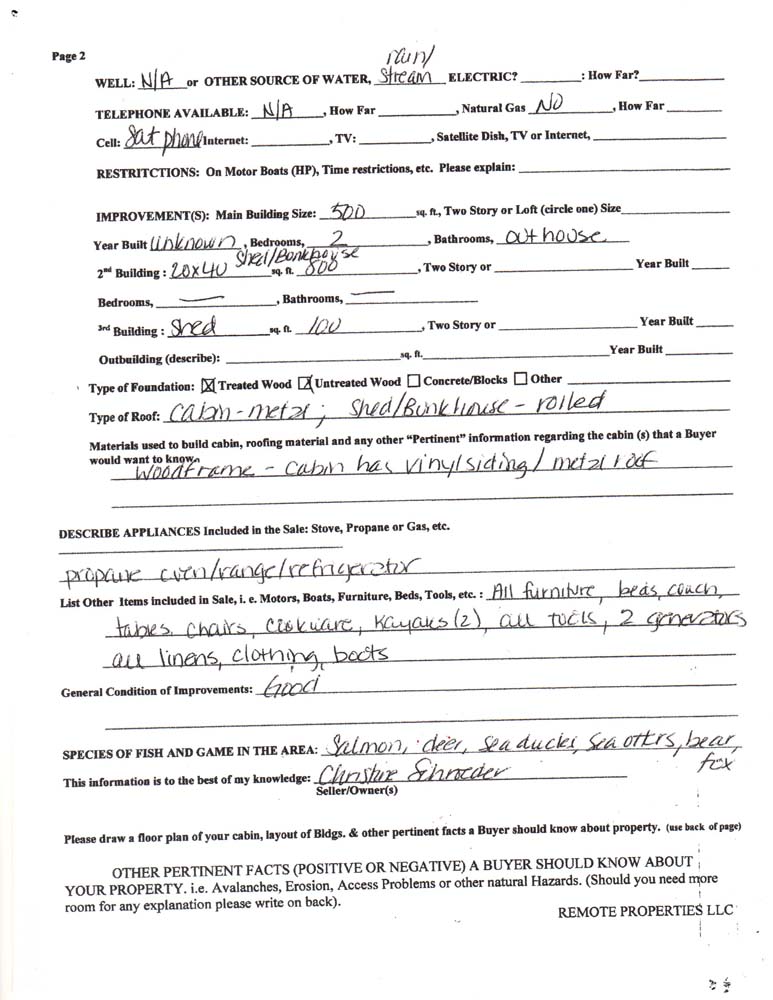 Page 2
rain/
WELL: N/A or OTHER SOURCE OF WATER, Stream ELECTRIC? ________: How Far?________
TELEPHONE AVAILABLE: N/A, How Far ________, Natural Gas NO, How Far ________
Cell: Sat phone Internet: ________, TV: ________, Satellite Dish, TV or Internet, ________
RESTRITCTIONS: On Motor Boats (HP), Time restrictions, etc. Please explain: ________
IMPROVEMENT(S): Main Building Size: 500 sq. ft., Two Story or Loft (circle one) Size________
Year Built Unknown, Bedrooms, 2, Bathrooms, outhouse
Shed/Bonkhouse
2nd Building : 20x40 sq. ft. 800, Two Story or ________ Year Built ____
Bedrooms, —, Bathrooms, —
3rd Building : Shed sq. ft. 100, Two Story or ________ Year Built ____
Outbuilding (describe): ________ sq. ft. ________ Year Built ____
Type of Foundation: ☒ Treated Wood ☒ Untreated Wood ☐ Concrete/Blocks ☐ Other ________
Type of Roof: Cabin - metal ; Shed/Bunkhouse - rolled
Materials used to build cabin, roofing material and any other “Pertinent” information regarding the cabin (s) that a Buyer
would want to know.
Woodframe - cabin has vinyl siding / metal roof
DESCRIBE APPLIANCES Included in the Sale: Stove, Propane or Gas, etc.
propane oven/range/refrigerator
List Other Items included in Sale, i. e. Motors, Boats, Furniture, Beds, Tools, etc. : All furniture, beds, couch,
tables, chairs, cookware, Kayaks (2), all tools, 2 generators
all linens, clothing, boots
General Condition of Improvements: Good
SPECIES OF FISH AND GAME IN THE AREA: Salmon, deer, sea ducks, sea otters, bear,
fox
This information is to the best of my knowledge: Christine Schroeder
Seller/Owner(s)
Please draw a floor plan of your cabin, layout of Bldgs. & other pertinent facts a Buyer should know about property. (use back of page)
OTHER PERTINENT FACTS (POSITIVE OR NEGATIVE) A BUYER SHOULD KNOW ABOUT
YOUR PROPERTY. i.e. Avalanches, Erosion, Access Problems or other natural Hazards. (Should you need more
room for any explanation please write on back).
REMOTE PROPERTIES LLC